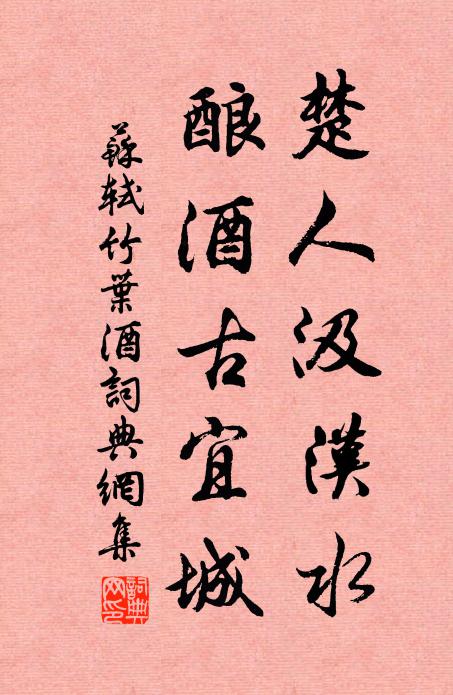 楚人汲漢水
酿酒古宜城
蘇軾竹葉酒詞典網集